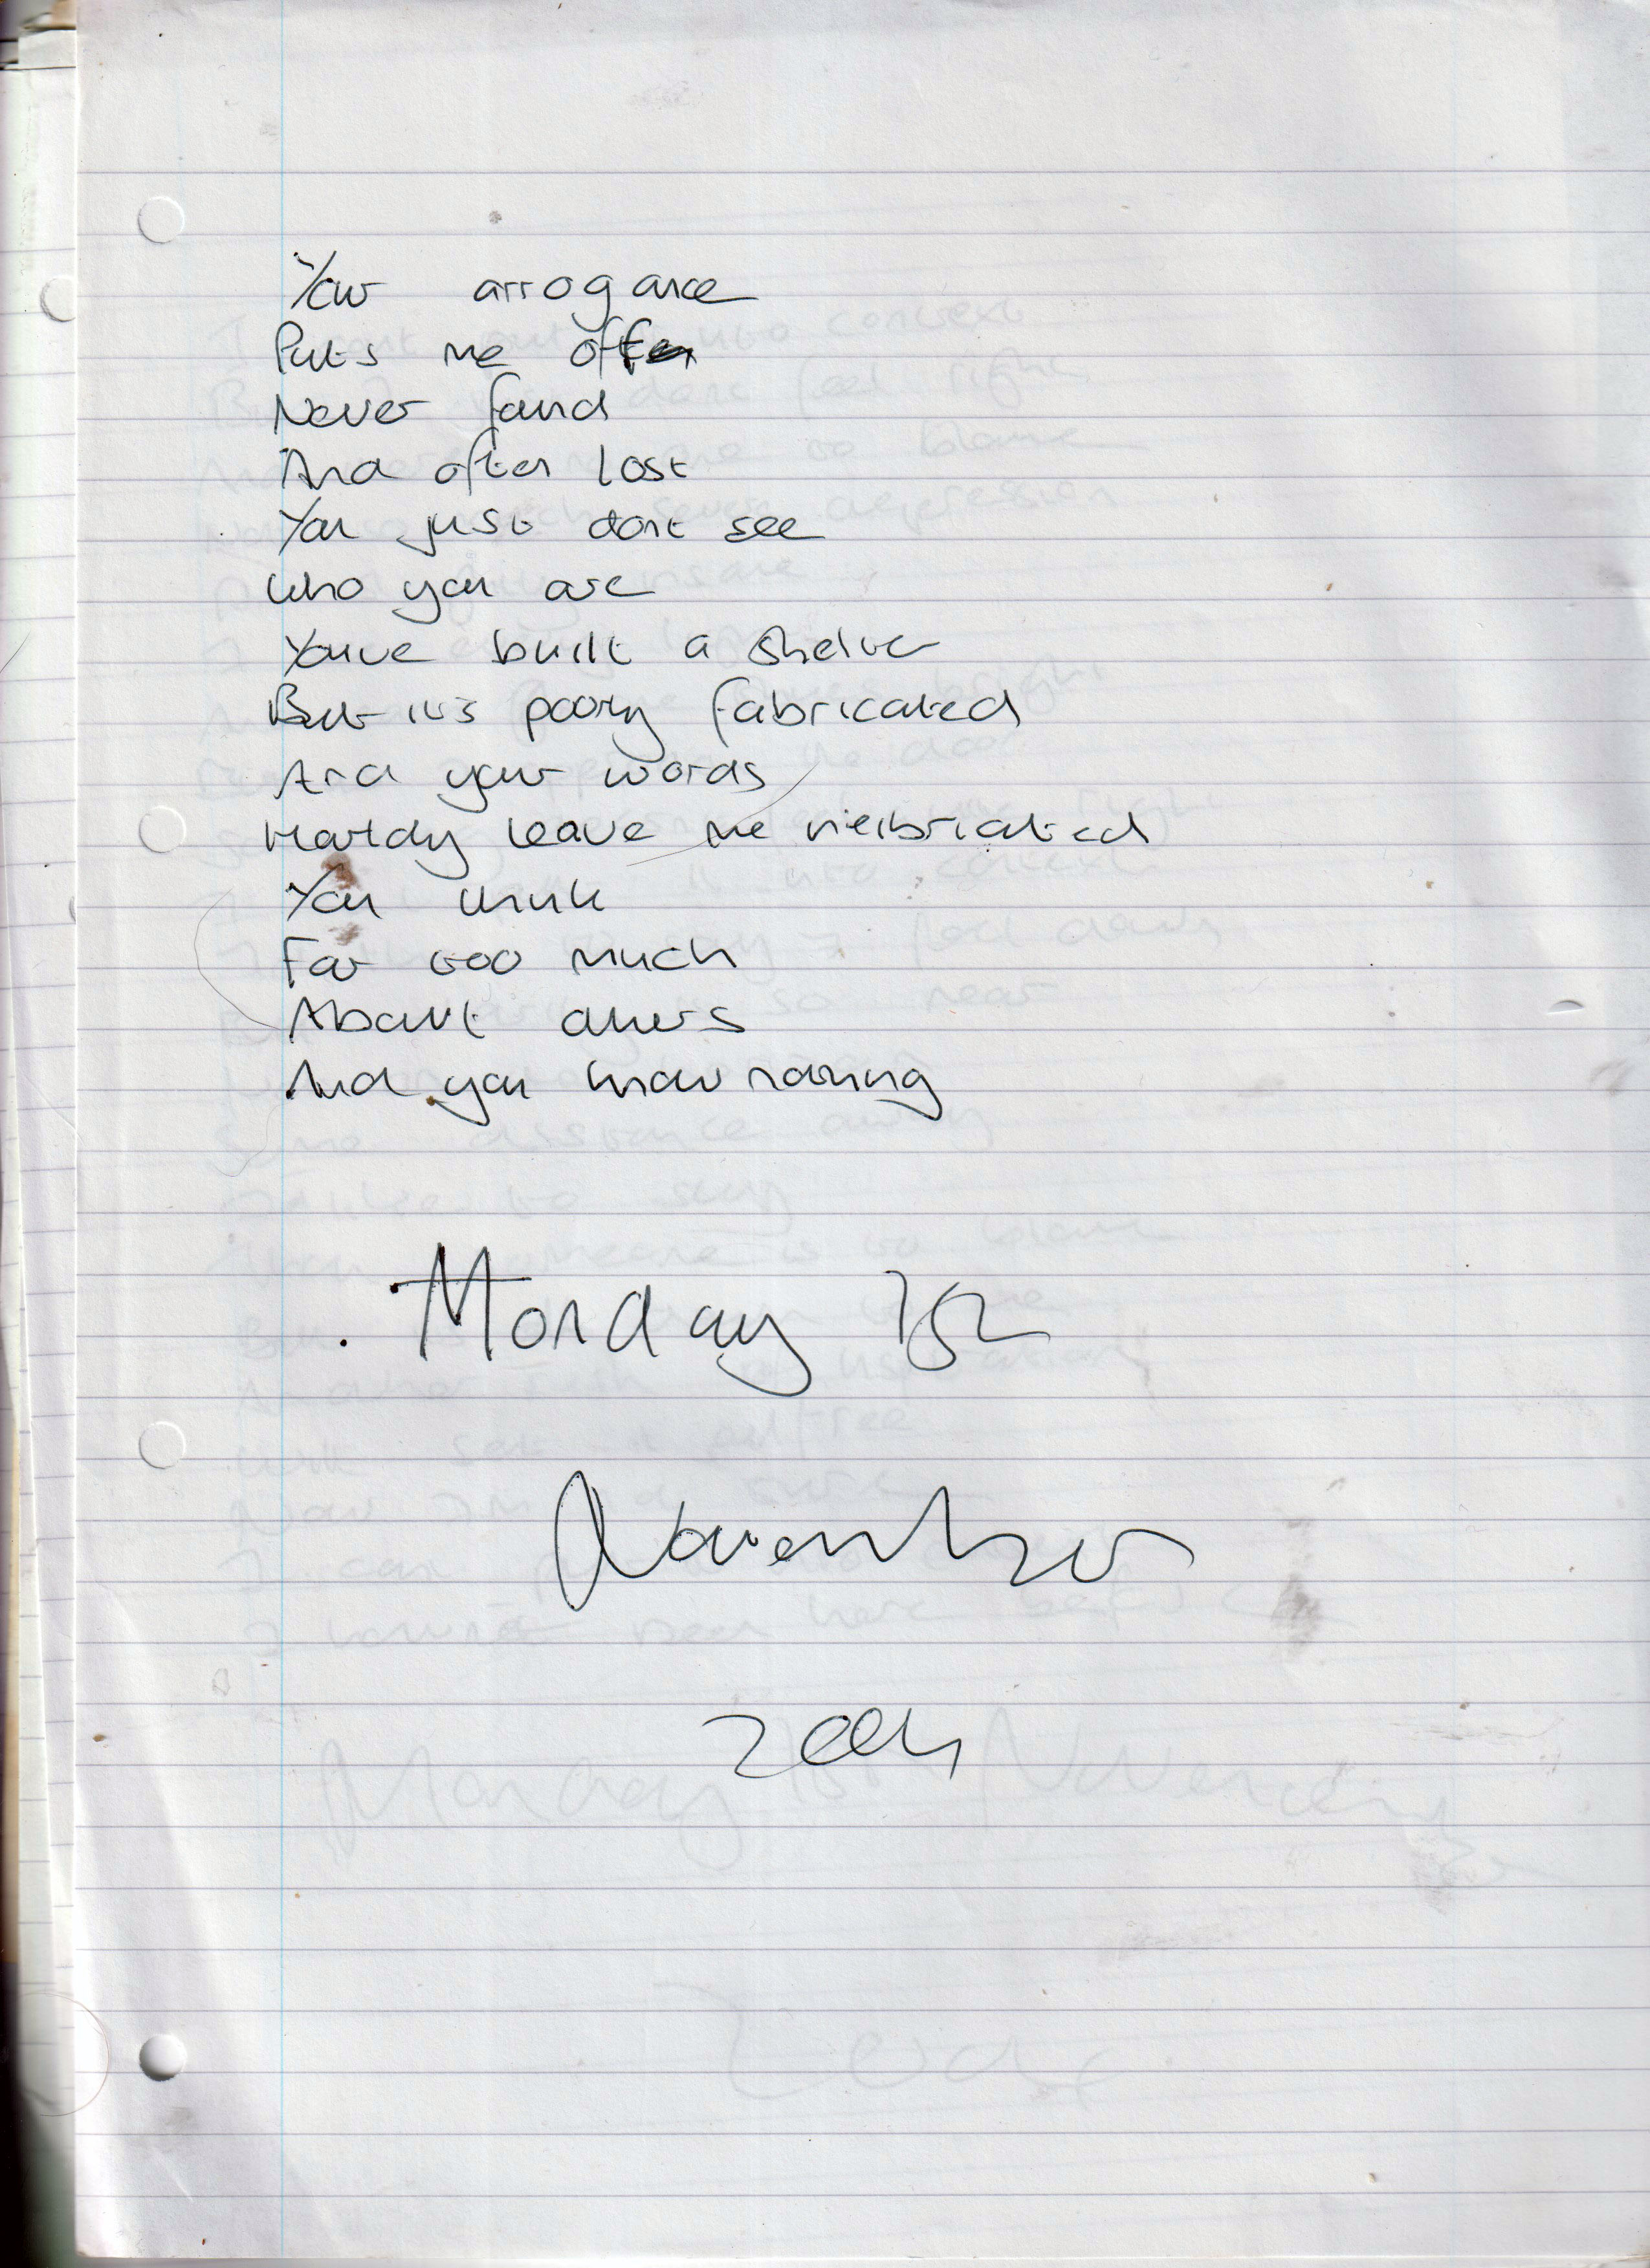 Your arrogance
Puts me off
Never found
And often lost
You just dont see
Who you are
Youve built a shelter
But its poorly fabricated
And your words
Hardly leave me inebriated
You think
Far too much
About others
And you know nothing
Monday 1st
November
2004